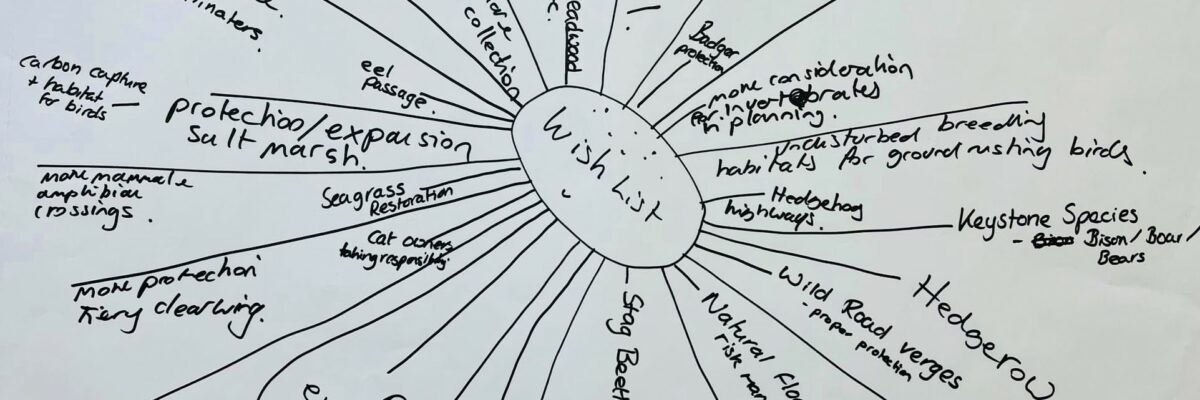 Wish List
more
collection
eadwood
Badger
protection
more consideration
for invertebrates
in planning.
undisturbed breeding
habitats for ground nesting birds.
Hedgehog
highways.
Keystone Species
- Bison/Boar/
Bears
Hedgerow
Wild Road verges
- proper protection
Natural Flo
risk man
Stag Beet
Cat owners
taking responsibility
more protection
Fiery clearwing.
Seagrass
Restoration
more mammal &
amphibian
crossings.
protection/expansion
Salt marsh.
carbon capture
+ habitat
for birds
eel
passage.